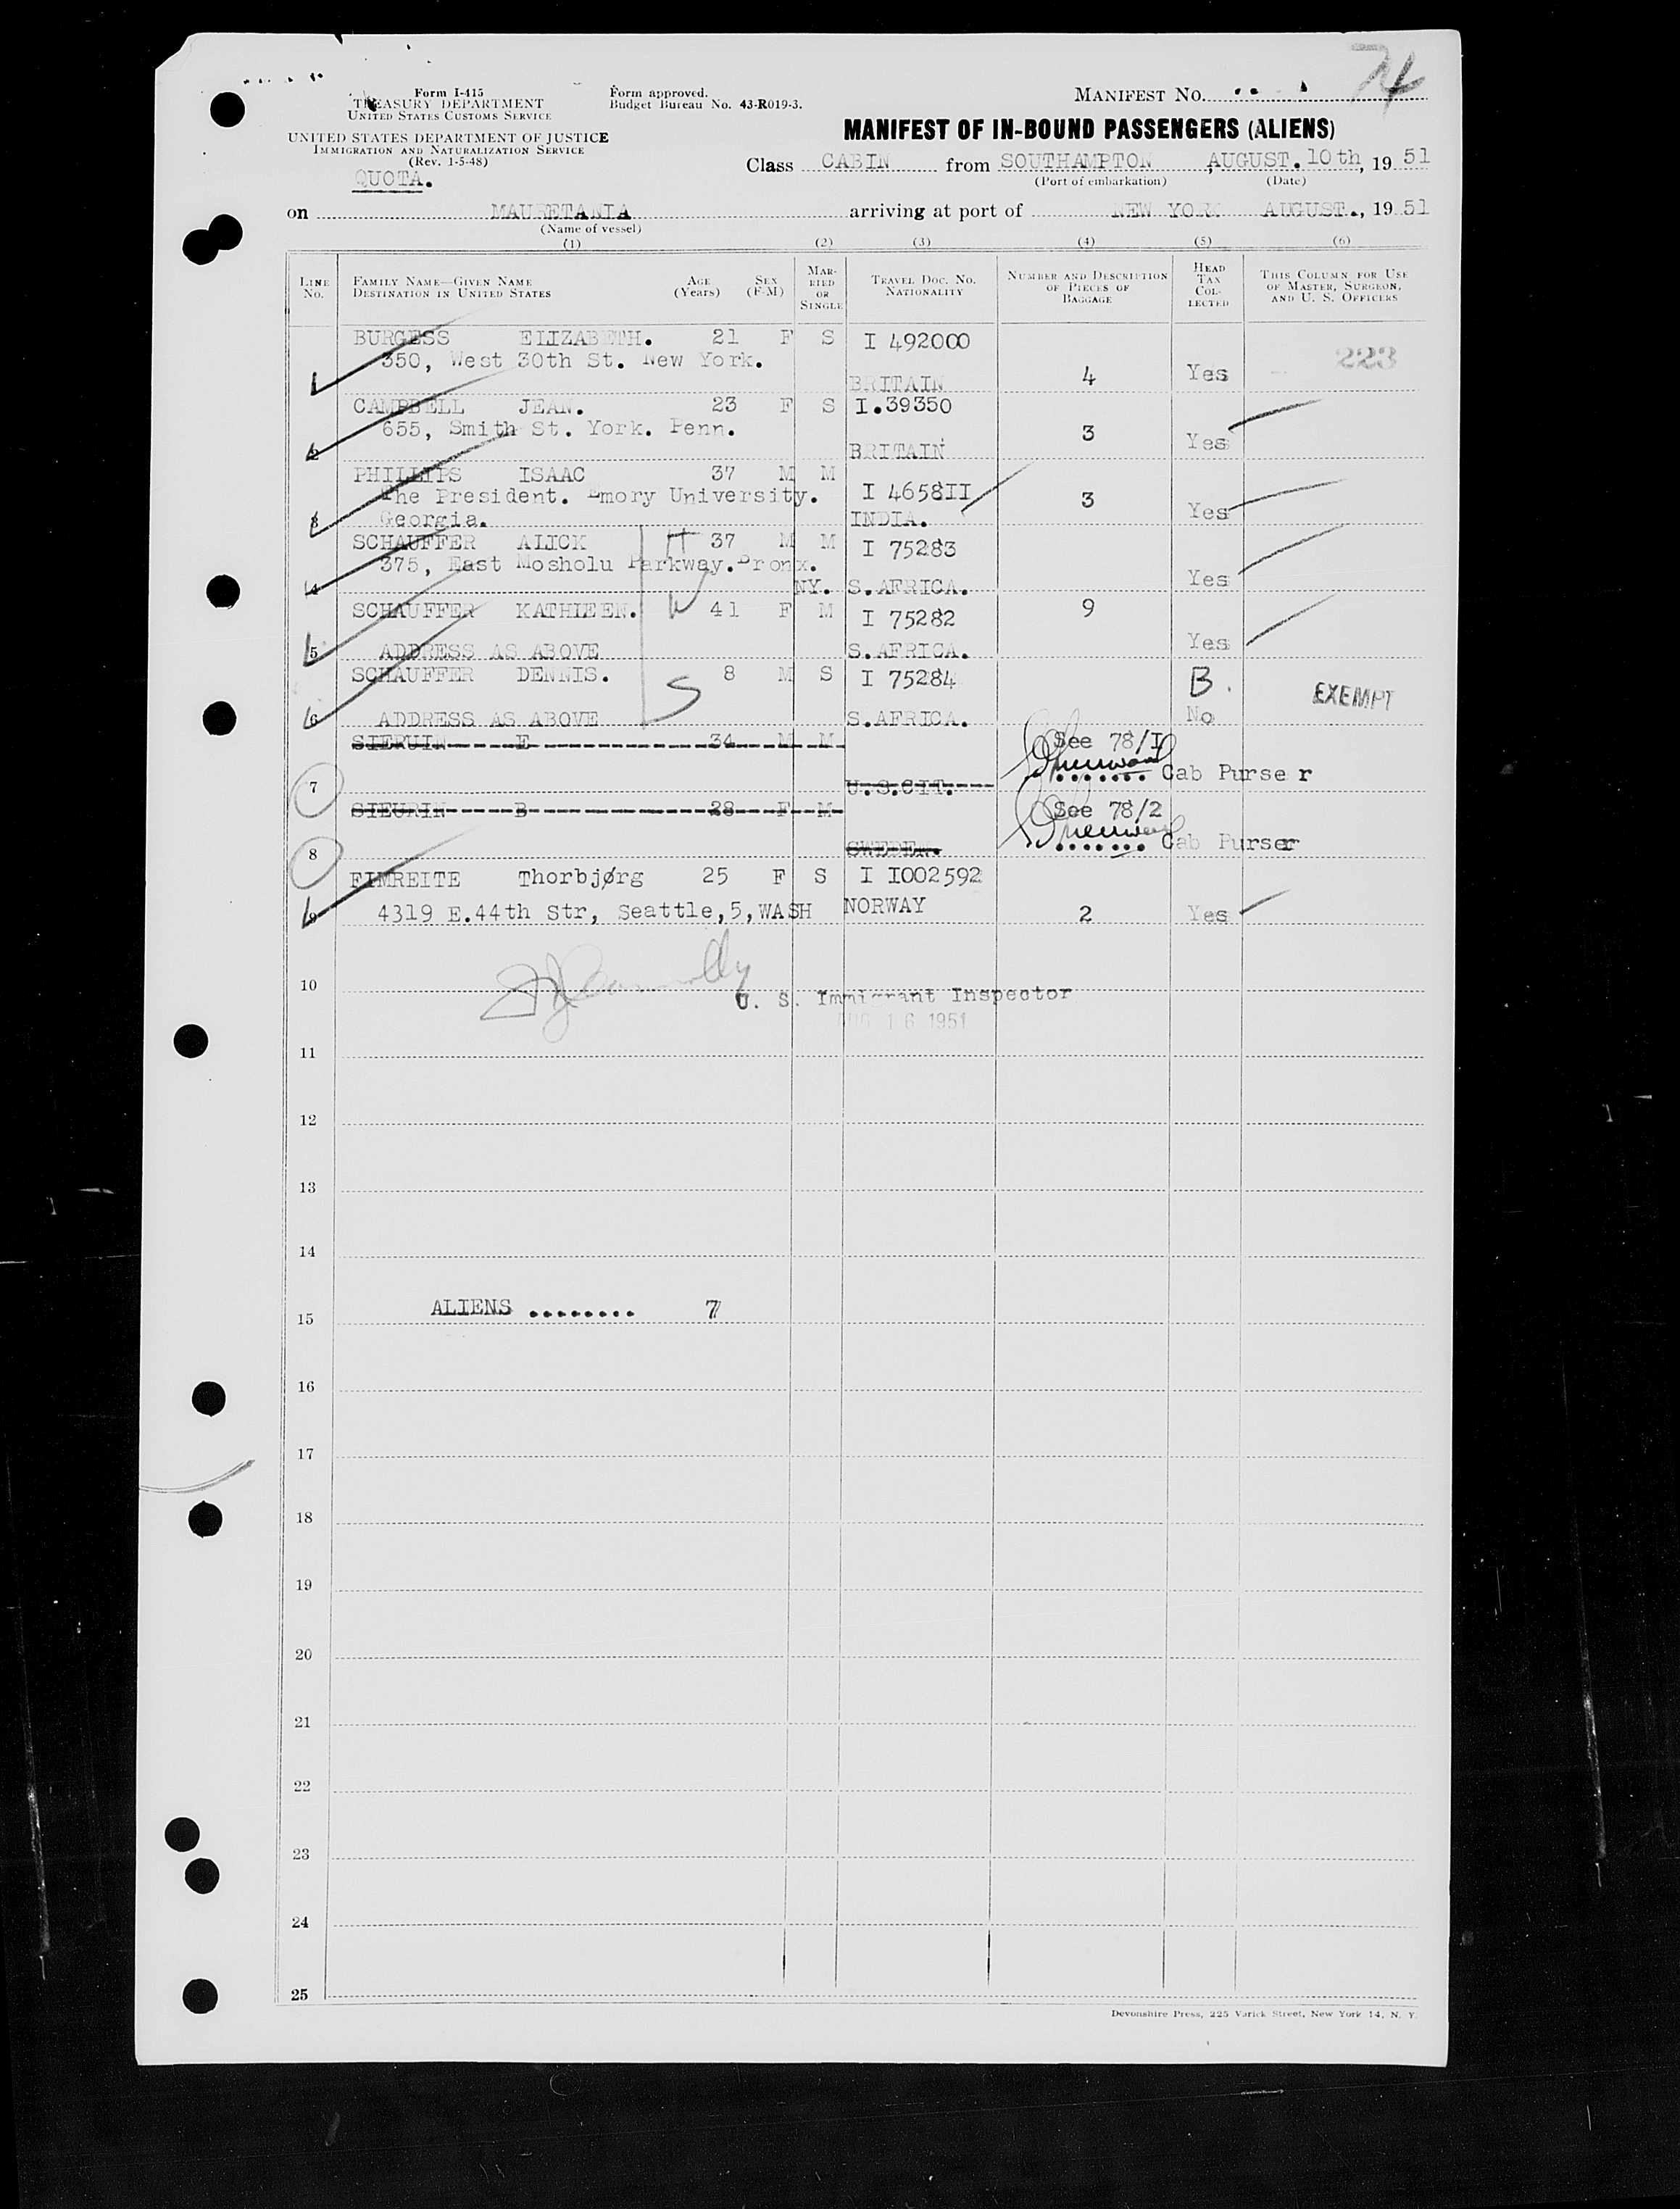 74
Form I-415
TREASURY DEPARTMENT
UNITED STATES CUSTOMS SERVICE
Form approved.
Budget Bureau No. 43-R019-3.
MANIFEST NO.
UNITED STATES DEPARTMENT OF JUSTICE
IMMIGRATION AND NATURALIZATION SERVICE
(Rev. 1-5-48)
QUOTA.
MANIFEST OF IN-BOUND PASSENGERS (ALIENS)
Class CABIN from SOUTHAMPTON, AUGUST. 10th, 19 51
(Port of embarkation) (Date)
on MAURETANIA arriving at port of NEW YORK AUGUST., 19 51
(Name of vessel)
(1) (2) (3) (4) (5) (6)
LINE No. FAMILY NAME—GIVEN NAME DESTINATION IN UNITED STATES AGE (Years) SEX (F-M) MARRIED OR SINGLE TRAVEL DOC. NO. NATIONALITY NUMBER AND DESCRIPTION OF PIECES OF BAGGAGE HEAD TAX COLLECTED THIS COLUMN FOR USE OF MASTER, SURGEON, AND U. S. OFFICERS
BURGESS ELIZABETH. 21 F S I 492000
350, West 30th St. New York. 223
1 BRITAIN 4 Yes
CAMPBELL JEAN. 23 F S I.39350
655, Smith St. York. Penn.
2 BRITAIN 3 Yes
PHILLIPS ISAAC 37 M M
The President. Emory University. I 4658II 3
3 Georgia. INDIA. Yes
SCHAUFFER ALICK H 37 M M I 75283
375, East Mosholu Parkway. Bronx.
4 NY. S.AFRICA. Yes
SCHAUFFER KATHLEEN. W 41 F M I 75282 9
5 ADDRESS AS ABOVE S.AFRICA. Yes
SCHAUFFER DENNIS. S 8 M S I 75284 B. EXEMPT
6 ADDRESS AS ABOVE S.AFRICA. No
SIERUIN E 34 M M See 78/I
7 U.S.CIT. Cab Purser
SIEURIN B 28 F M See 78/2
8 SWEDEN. Cab Purser
FIMREITE Thorbjørg 25 F S I I002592
9 4319 E.44th Str, Seattle,5,WASH NORWAY 2 Yes
10 U. S. Immigrant Inspector
AUG 16 1951
11
12
13
14
15 ALIENS ........ 7
16
17
18
19
20
21
22
23
24
25
Devonshire Press, 225 Varick Street, New York 14, N. Y.